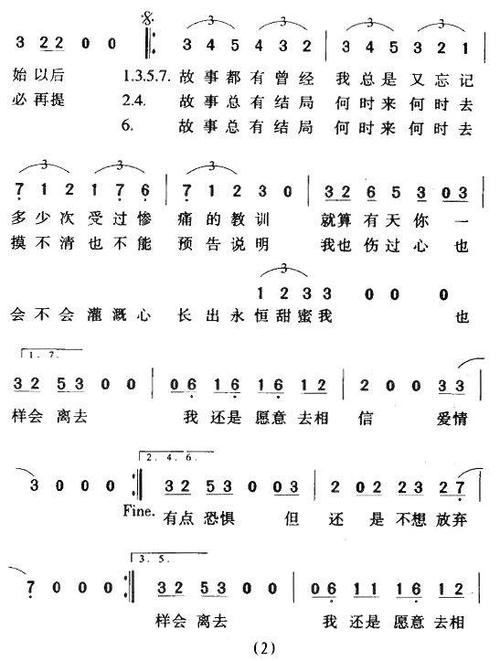 3 2 2 0 0 3 4 5 4 3 2 3 4 5 3 2 1
始以后 1.3.5.7. 故事都有曾经 我总是又忘记
必再提 2.4. 故事总有结局 何时来何时去
6. 故事总有结局 何时来何时去
3 3 3
7 1 2 1 7 6 7 1 2 3 0 3 2 6 5 3 0 3
多少次受过惨 痛的教训 就算有天你一
摸不清也不能 预告说明 我也伤过心也
3
1 2 3 3 0 0 0
会不会灌溉心 长出永恒甜蜜我 也
1. 7.
3 2 5 3 0 0 0 6 1 6 1 6 1 2 1 2 0 0 3 3
样会离去 我还是愿意去相 信 爱情
2. 4. 6.
3 0 0 0 3 2 5 3 0 0 3 2 0 2 2 3 2 7
Fine. 有点恐惧 但 还是不想放弃
3. 5.
7 0 0 0 3 2 5 3 0 0 0 6 1 1 1 6 1 2
样会离去 我还是愿意去相
(2)